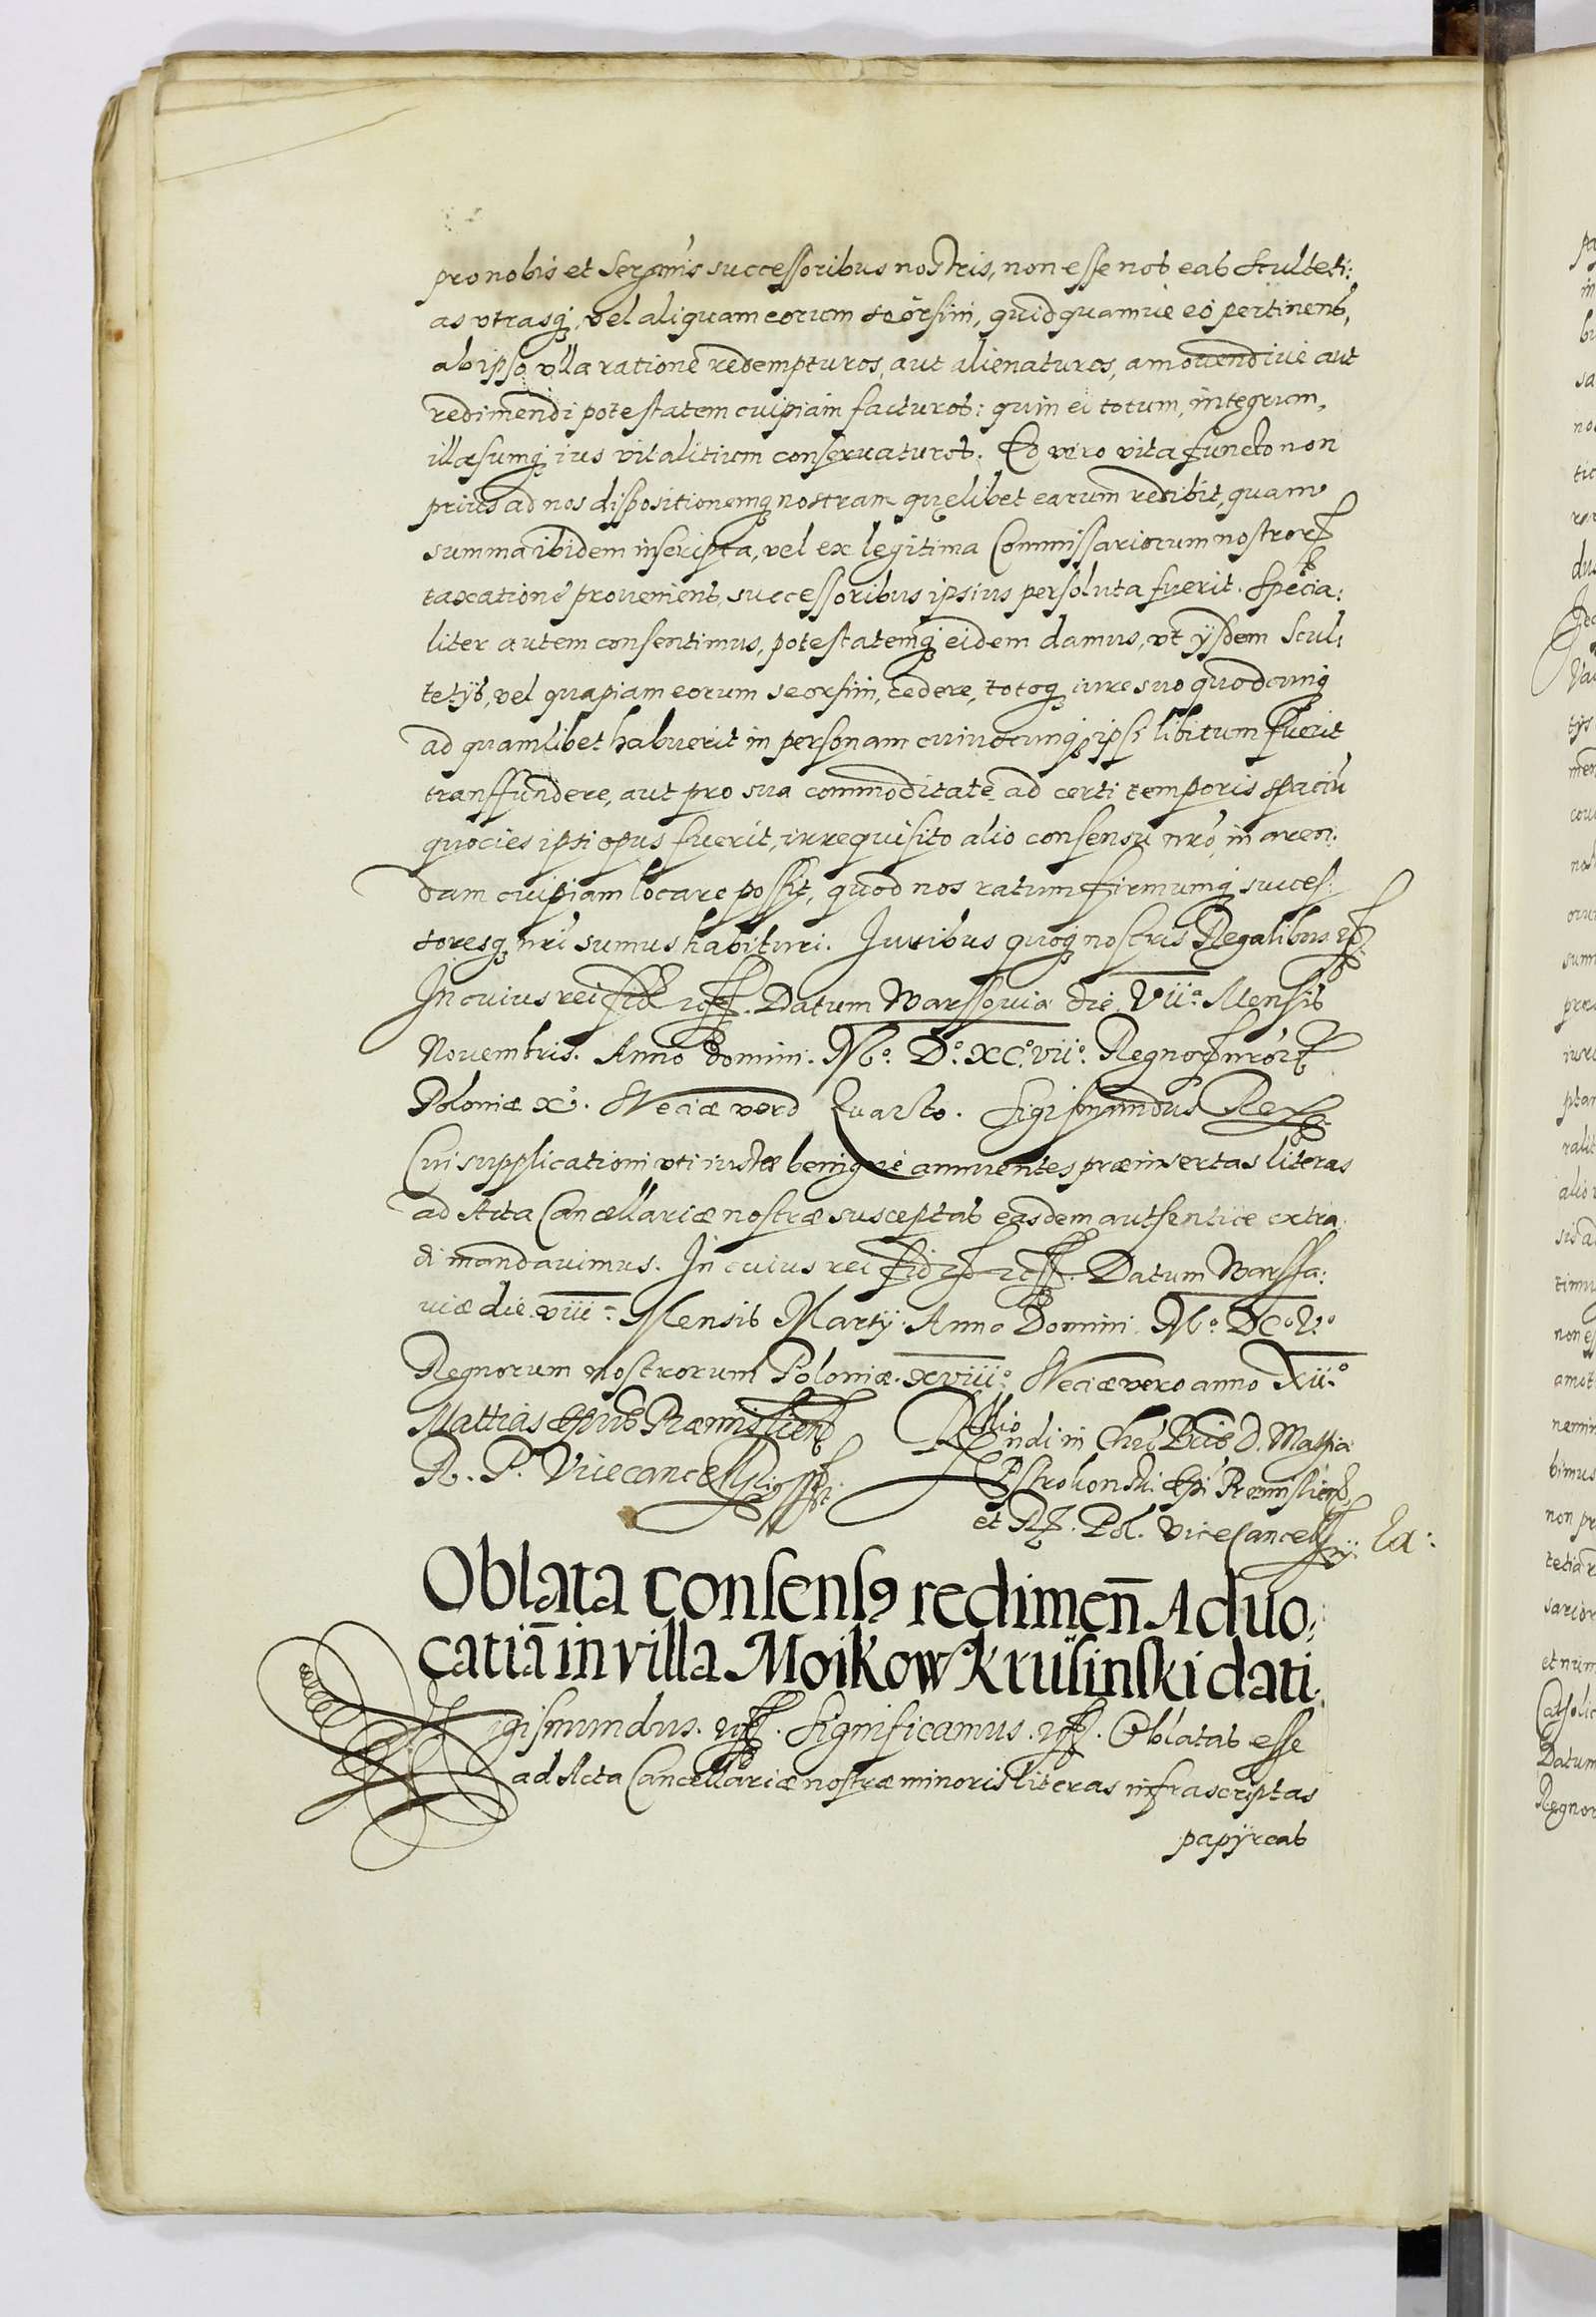 pro nobis et Serỹmis successoribus nostris, non esse nos eas Sculteti:
as vtrasq, vel aliquam eorum seorsim, quidquamue eo pertinens,
ab ipso vlla ratione redempturos, aut alienaturos, amouendiue aut
redimendi potestatem cuipiam facturos: quin ei totum, integrum,
illæsumq ius vitalitium conseruaturos. Eo vero vita functo non
prius ad nos dispositionemq nostram quęlibet earum redibit, quam
summa ibidem inscripta, vel ex legitima Commissariorum nostror
taxatione proueniens, successoribus ipsius persoluta fuerit. Specia:
liter autem consentimus, potestatemq eidem damus, vt ijsdem Scul:
tetijs, vel quapiam eorum seorsim, cedere, totoq iure suo quodcunq
ad quamlibet habuerit in personam cuiuscunq ipsi libitum fuerit
transfundere, aut pro sua commoditate ad certi temporis spaciũ
quocies ipsi opus fuerit, irrequisito alio consensu nrõ in aren:
dam cuipiam locare possit, quod nos ratum firmumq succes:
soresq nri sumus habituri. Iuribus quoq nostris Regalibus
In cuius rei fid Datum Warssouia die VIIa Mensis
Nouembris. Anno Domini. Mo. Do. XCo. VIIo. Regnor nrõr
Poloniæ Xo. Sueciæ vero Quarto. Sigismundus Rex
Cui supplicationi vti iustæ benigne annuentes præinsertas literas
ad Acta Cancellariæ nostræ susceptas easdem authentice extra:
di mandauimus. In cuius rei fid Datum Warssa:
uiæ die VIIIa Mensis Martij Anno Domini Mo. DCo. Vo
Regnorum nostrorum Poloniæ. XVIIIo Sueciæ vero anno XIIo
Mattias Epus Præmisliens
R. P. Vicecancell
Rlio
ndi in Chr D. Mathia
Pstrokonski Epi Premislien
et R. Pol. Vicecancell rij. Ea:
Oblata Consens9 redimeñ Aduo:
catiã in villa Moikow Krusinski dati
Sigismundus. Significamus. Oblatas esse
ad Acta Cancellariæ nostræ minoris literas infrascriptas
papijreas